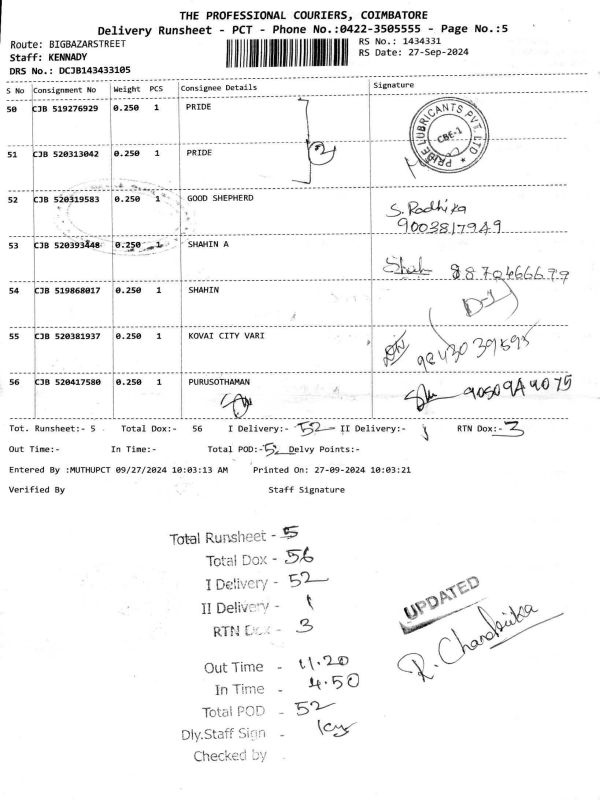 THE PROFESSIONAL COURIERS, COIMBATORE
Delivery Runsheet - PCT - Phone No.:0422-3505555 - Page No.:5
Route: BIGBAZARSTREET RS No.: 1434331
Staff: KENNADY RS Date: 27-Sep-2024
DRS No.: DCJB143433105
S No Consignment No Weight PCS Consignee Details Signature
50 CJB 519276929 0.250 1 PRIDE
PRIDE LUBRICANTS PVT LTD CBE-1
51 CJB 520313042 0.250 1 PRIDE
52 CJB 520319583 0.250 1 GOOD SHEPHERD S. Radhika
9003817949
53 CJB 520393448 0.250 1 SHAHIN A
54 CJB 519868017 0.250 1 SHAHIN D-1
55 CJB 520381937 0.250 1 KOVAI CITY VARI 9243039595
56 CJB 520417580 0.250 1 PURUSOTHAMAN
Tot. Runsheet:- 5 Total Dox:- 56 I Delivery:- 52 II Delivery:- 1 RTN Dox:- 3
Out Time:- In Time:- Total POD:- 52 Delvy Points:-
Entered By :MUTHUPCT 09/27/2024 10:03:13 AM Printed On: 27-09-2024 10:03:21
Verified By Staff Signature
Total Runsheet - 5
Total Dox - 56
I Delivery - 52
II Delivery - 1
RTN Dox - 3
UPDATED
R. Chandrika
Out Time - 11.20
In Time - 4.50
Total POD - 52
Dly.Staff Sign -
Checked by